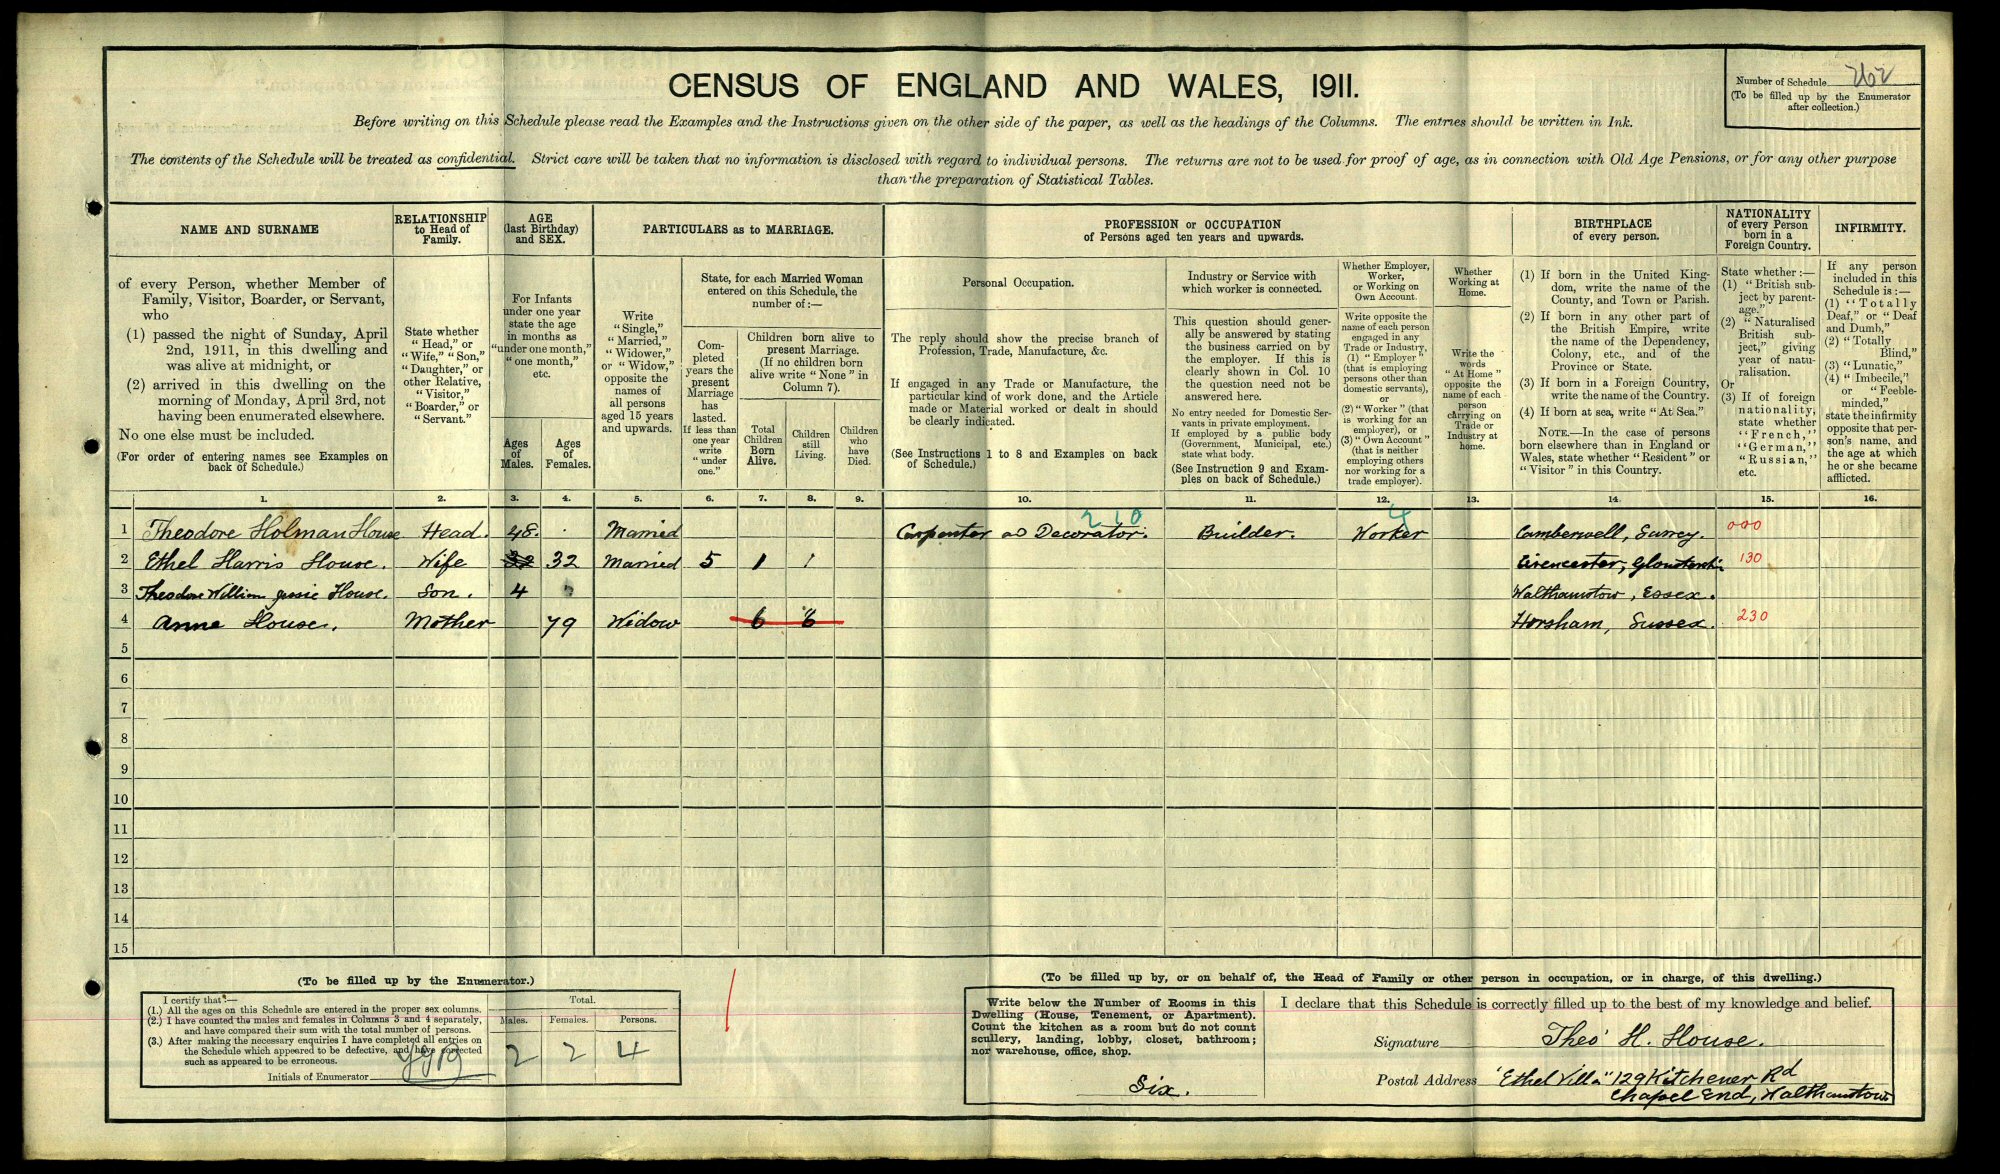 CENSUS OF ENGLAND AND WALES, 1911.
Number of Schedule 262
(To be filled up by the Enumerator
after collection.)
Before writing on this Schedule please read the Examples and the Instructions given on the other side of the paper, as well as the headings of the Columns. The entries should be written in Ink.
The contents of the Schedule will be treated as confidential. Strict care will be taken that no information is disclosed with regard to individual persons. The returns are not to be used for proof of age, as in connection with Old Age Pensions, or for any other purpose
than the preparation of Statistical Tables.
NAME AND SURNAME
of every Person, whether Member of
Family, Visitor, Boarder, or Servant,
who
(1) passed the night of Sunday, April
2nd, 1911, in this dwelling and
was alive at midnight, or
(2) arrived in this dwelling on the
morning of Monday, April 3rd, not
having been enumerated elsewhere.
No one else must be included.
(For order of entering names see Examples on
back of Schedule.)
RELATIONSHIP
to Head of
Family.
State whether
"Head," or
"Wife," "Son,"
"Daughter," or
other Relative,
"Visitor,"
"Boarder," or
"Servant."
AGE
(last Birthday)
and SEX.
For Infants
under one year
state the age
in months as
"under one month,"
"one month,"
etc.
Ages
of
Males.
Ages
of
Females.
PARTICULARS as to MARRIAGE.
Write
"Single,"
"Married,"
"Widower,"
or "Widow,"
opposite the
names of
all persons
aged 15 years
and upwards.
State, for each Married Woman
entered on this Schedule, the
number of:—
Completed
years the
present
Marriage
has
lasted.
If less than
one year
write
"under
one."
Children born alive to
present Marriage.
(If no children born
alive write "None" in
Column 7).
Total
Children
Born
Alive.
Children
still
Living.
Children
who
have
Died.
PROFESSION or OCCUPATION
of Persons aged ten years and upwards.
Personal Occupation.
The reply should show the precise branch of
Profession, Trade, Manufacture, &c.
If engaged in any Trade or Manufacture, the
particular kind of work done, and the Article
made or Material worked or dealt in should
be clearly indicated.
(See Instructions 1 to 8 and Examples on back
of Schedule.)
Industry or Service with
which worker is connected.
This question should gener-
ally be answered by stating
the business carried on by
the employer. If this is
clearly shown in Col. 10
the question need not be
answered here.
No entry needed for Domestic Ser-
vants in private employment.
If employed by a public body
(Government, Municipal, etc.)
state what body.
(See Instruction 9 and Exam-
ples on back of Schedule.)
Whether Employer,
Worker,
or Working on
Own Account.
Write opposite the
name of each person
engaged in any
Trade or Industry,
(1) "Employer"
(that is employing
persons other than
domestic servants),
or
(2) "Worker" (that
is working for an
employer), or
(3) "Own Account"
(that is neither
employing others
nor working for a
trade employer).
Whether
Working at
Home.
Write the
words
"At Home"
opposite the
name of each
person
carrying on
Trade or
Industry at
home.
BIRTHPLACE
of every person.
(1) If born in the United King-
dom, write the name of the
County, and Town or Parish.
(2) If born in any other part of
the British Empire, write
the name of the Dependency,
Colony, etc., and of the
Province or State.
(3) If born in a Foreign Country,
write the name of the Country.
(4) If born at sea, write "At Sea."
NOTE.—In the case of persons
born elsewhere than in England or
Wales, state whether "Resident" or
"Visitor" in this Country.
NATIONALITY
of every Person
born in a
Foreign Country.
State whether:—
(1) "British sub-
ject by parent-
age."
(2) "Naturalised
British sub-
ject," giving
year of natu-
ralisation.
Or
(3) If of foreign
nationality,
state whether
"French,"
"German,"
"Russian,"
etc.
INFIRMITY.
If any person
included in this
Schedule is:—
(1) "Totally
Deaf," or "Deaf
and Dumb,"
(2) "Totally
Blind,"
(3) "Lunatic,"
(4) "Imbecile,"
or "Feeble-
minded,"
state the infirmity
opposite that per-
son's name, and
the age at which
he or she became
afflicted.
1. 2. 3. 4. 5. 6. 7. 8. 9. 10. 11. 12. 13. 14. 15. 16.
210 4
1 Theodore Holman House Head. 48. Married Carpenter & Decorator. Builder. Worker Camberwell, Surrey. 000
2 Ethel Harris House. Wife 32 32 Married 5 1 1 Cirencester, Gloucestershire 130
3 Theodore William Jessie House. Son. 4 Walthamstow, Essex.
4 Anne House. Mother 79 Widow 6 6 Horsham, Sussex. 230
5
6
7
8
9
10
11
12
13
14
15
(To be filled up by the Enumerator.)
I certify that:—
(1.) All the ages on this Schedule are entered in the proper sex columns.
(2.) I have counted the males and females in Columns 3 and 4 separately,
and have compared their sum with the total number of persons.
(3.) After making the necessary enquiries I have completed all entries on
the Schedule which appeared to be defective, and have corrected
such as appeared to be erroneous.
Initials of Enumerator
Total.
Males. Females. Persons.
2 2 4
(To be filled up by, or on behalf of, the Head of Family or other person in occupation, or in charge, of this dwelling.)
Write below the Number of Rooms in this
Dwelling (House, Tenement, or Apartment).
Count the kitchen as a room but do not count
scullery, landing, lobby, closet, bathroom;
nor warehouse, office, shop.
Six.
I declare that this Schedule is correctly filled up to the best of my knowledge and belief.
Signature Theo' H. House.
Postal Address "Ethel Villa" 129 Kitchener Rd
Chapel End, Walthamstow